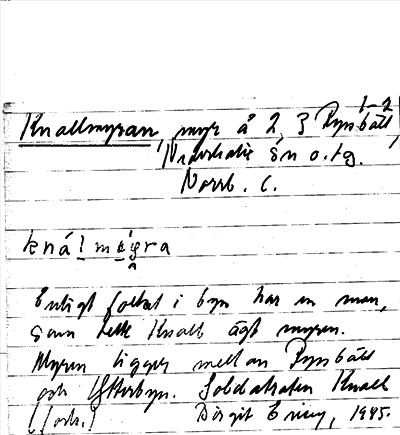 1-2
Knallmyran, myr å 2, 3 Rynbäck,
Nederkalix sn o. tg.
Norrb. l.
knálmy̆ra
Enligt folket i byn har en man,
som hette Knall ägt myren.
Myren ligger mellan
och Ytterbyn. Soldatnamn Knall
Birgit Ericz, 1945.